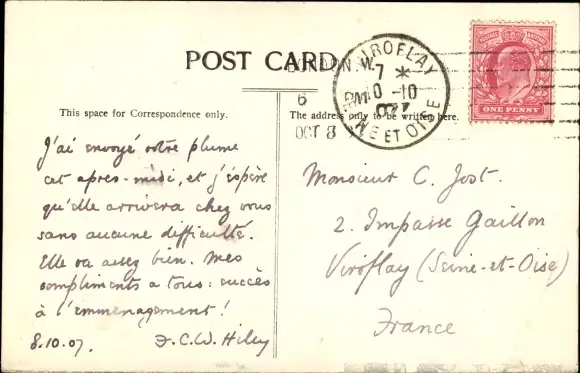 POST CARD
LONDON.W.
6
OCT 8
VIROFLAY
7 *
10 -10
07
NE ET OISE
ONE PENNY
This space for Correspondence only.
The address only to be written here.
J'ai envoyé votre plume
cet apres-midi, et j'éspère
qu'elle arrivera chez vous
sans aucune difficulté.
Elle va assez bien. Mes
compliments a tous: succès
à l'emmenagement!
8.10.07. F.C.W. Hiley
Monsieur C. Jost.
2. Impasse Gaillon
Viroflay (Seine-et-Oise)
France